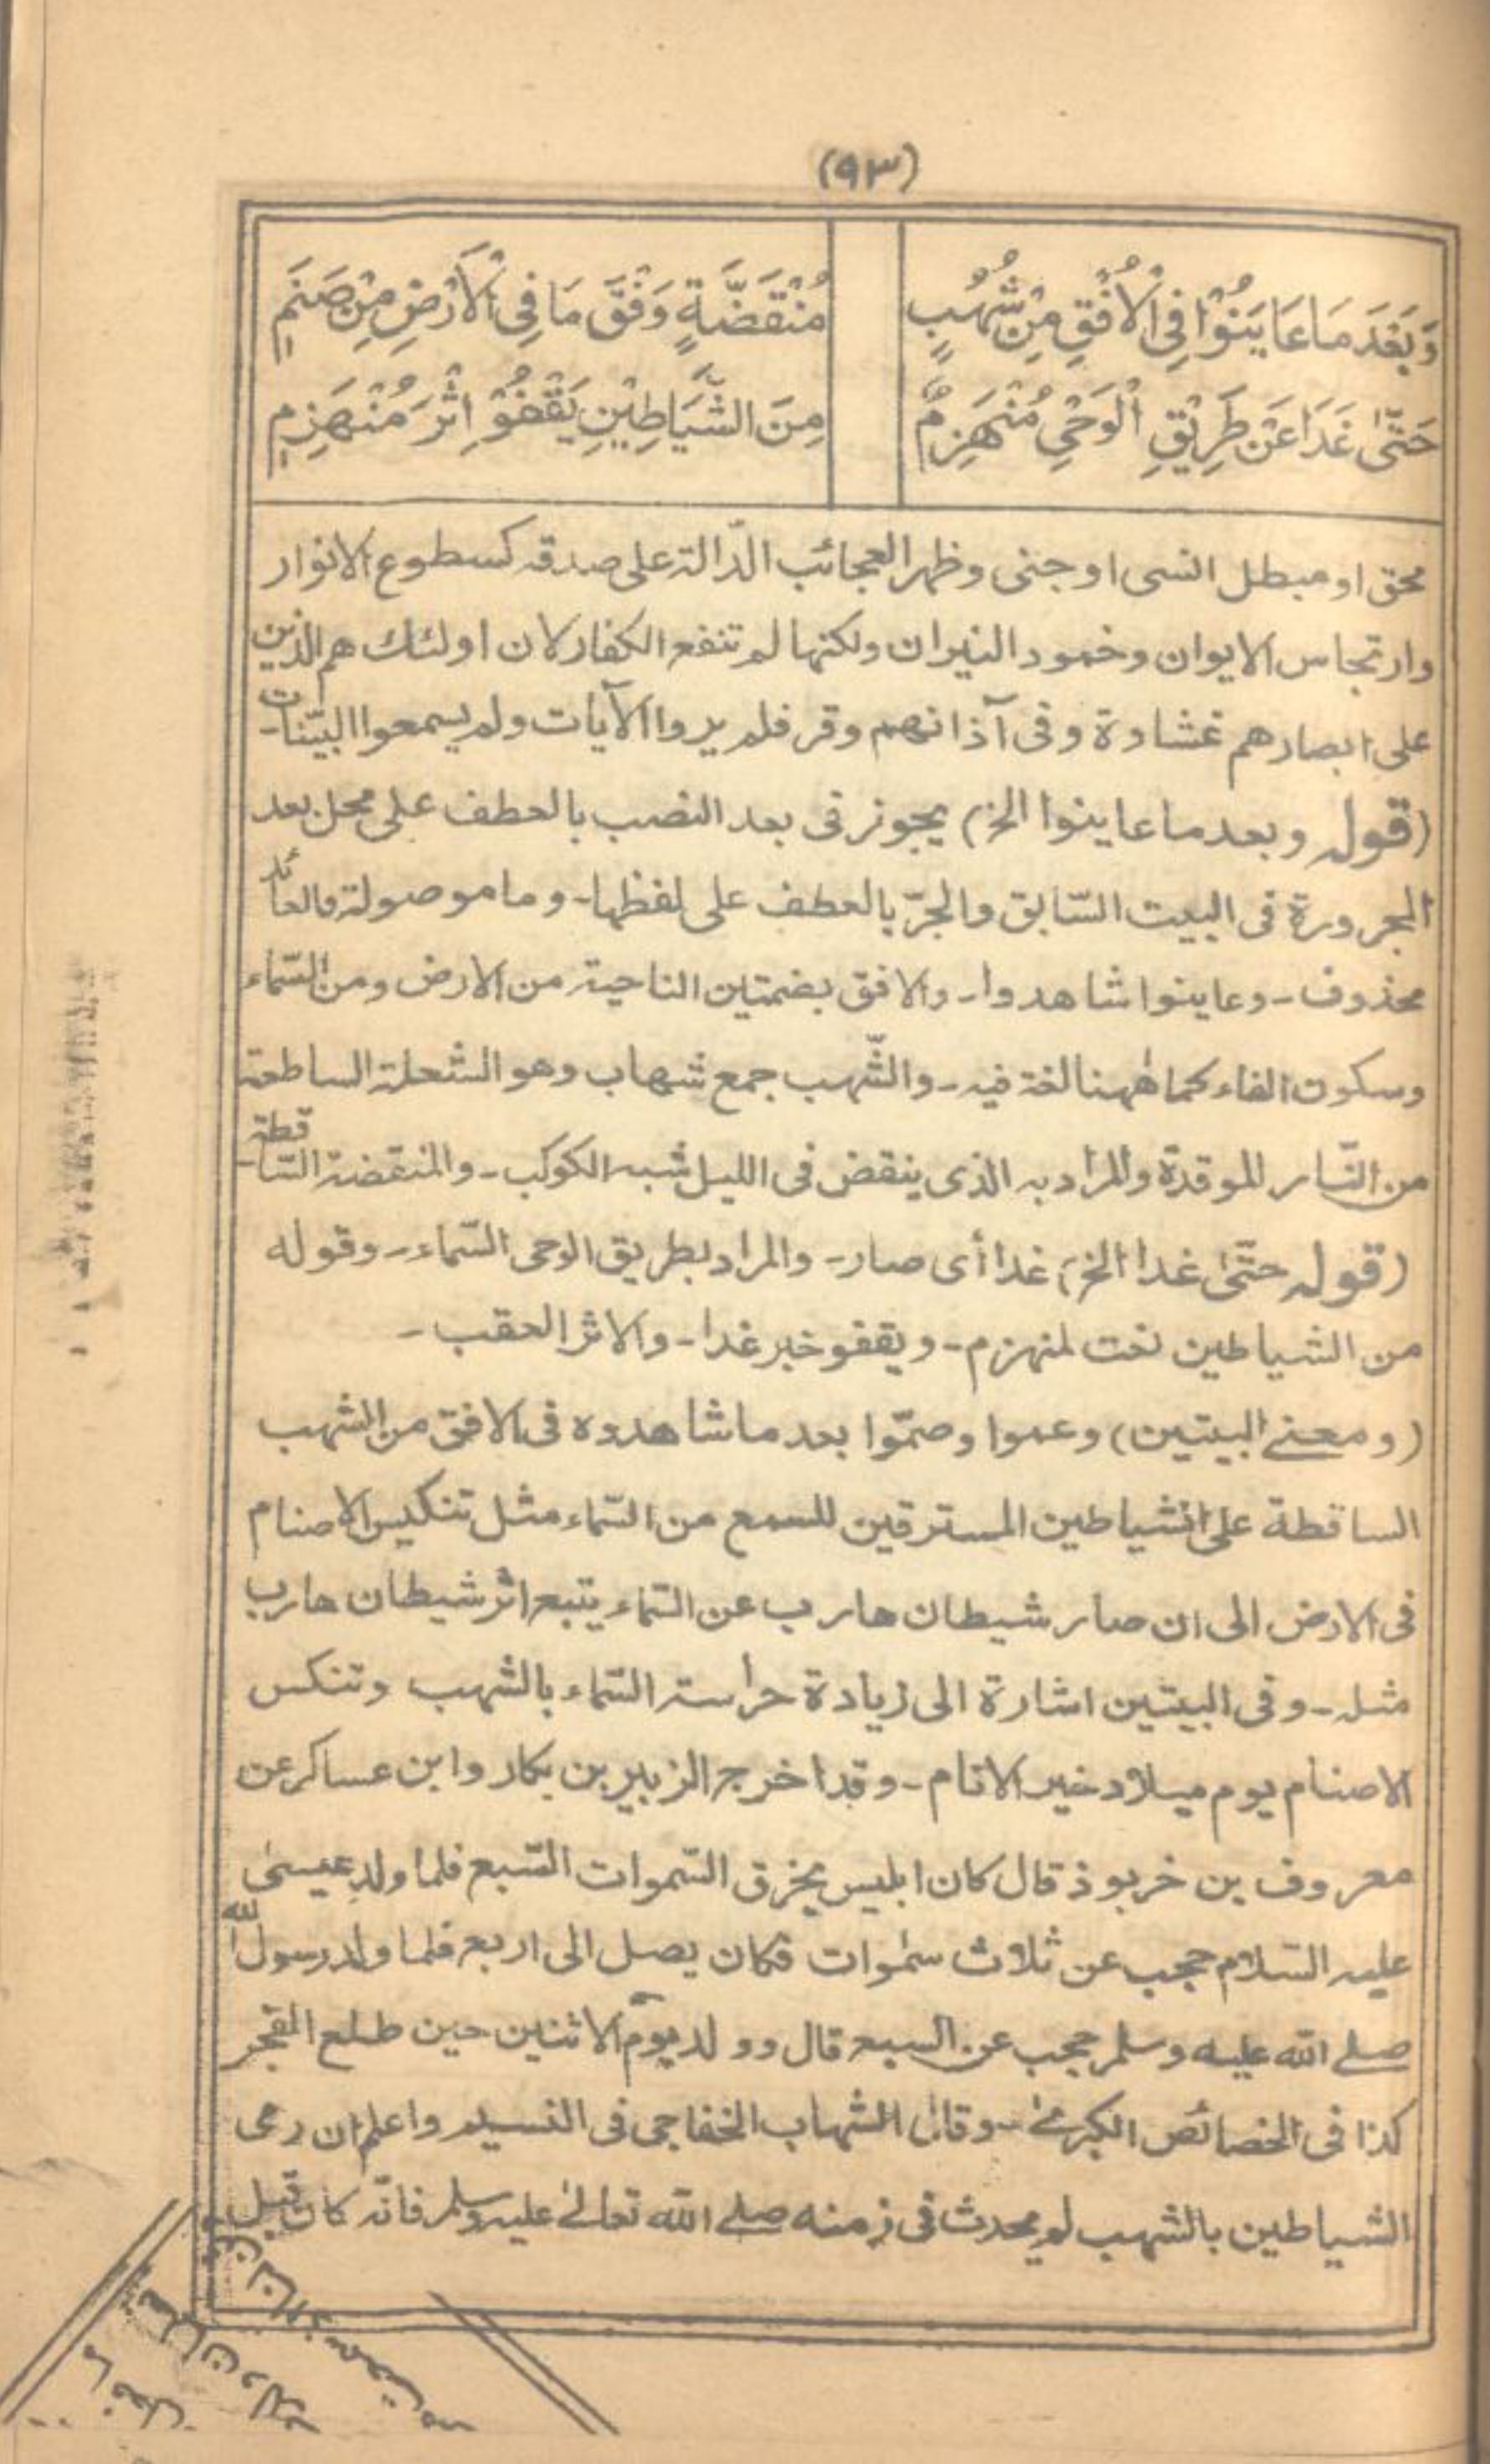 (٩٣)
وَبَعْدَ مَا عَايَنُوْا فِي الْاُفْقِ مِنْ شُهُبٍ مُنْقَضَّةٍ وَفْقَ مَا فِي الْاَرْضِ مِنْ صَنَمٖ
حَتّٰى غَدَا عَنْ طَرِيْقِ الْوَحْيِ مُنْهَزِمٌ مِنَ الشَّيَاطِيْنِ يَقْفُوْ اِثْرَ مُنْهَزِمٖ
محق او مبطل انسى او جنى وظهر العجائب الدّالة على صدقه كسطوع الانوار
وارتجاس الايوان وخمود النيران ولكنها لم تنفع الكفار لان اولئك هم الذين
على ابصارهم غشاوة وفى آذانهم وقر فلم يروا الآيات ولم يسمعوا البيّنات-
(قوله وبعد ما عاينوا الخ) يجوز فى بعد النصب بالعطف على محل بعد
المجرورة فى البيت السّابق والجرّ بالعطف على لفظها- وما موصولة والعائد
محذوف- وعاينوا شاهدوا- والافق بضمتين الناحية من الارض ومن السّماء
وسكون الفاء كما ههنا لغة فيه- والشّهب جمع شهاب وهو الشعلة الساطعة
من النّار الموقدة والمراد به الذى ينقض فى الليل شبه الكوكب- والمنقضة السّاقطة-
(قوله حتّىٰ غدا الخ) غدا أى صار- والمراد بطريق الوحى السّماء- وقوله
من الشياطين نعت لمنهزم- ويقفو خبر غدا- والاثر العقب-
(ومعنے البيتين) وعموا وصمّوا بعد ما شاهدوه فى الافق من الشهب
الساقطة على الشياطين المسترقين للسمع من السّماء مثل تنكيس الاصنام
فى الارض الى ان صار شيطان هارب عن السّماء يتبع اثر شيطان هارب
مثله- وفى البيتين اشارة الى زيادة حراسة السّماء بالشهب وتنكس
الاصنام يوم ميلاد خير الانام- وقد اخرج الزبير بن بكار وابن عساكر عن
معروف بن خربوذ قال كان ابليس يخرق السّموات السّبع فلما ولد عيسىٰ
عليه السّلام حجب عن ثلاث سمٰوات فكان يصل الى اربع فلما ولد رسول الله
صلے الله عليه وسلم حجب عن السبع قال وولد يوم الاثنين حين طلع الفجر
كذا فى الخصائص الكبرىٰ- وقال الشهاب الخفاجى فى النسيم واعلم ان رمى
الشياطين بالشهب لم يحدث فى زمنه صلے الله تعالىٰ عليه وسلم فانّه كان قبل